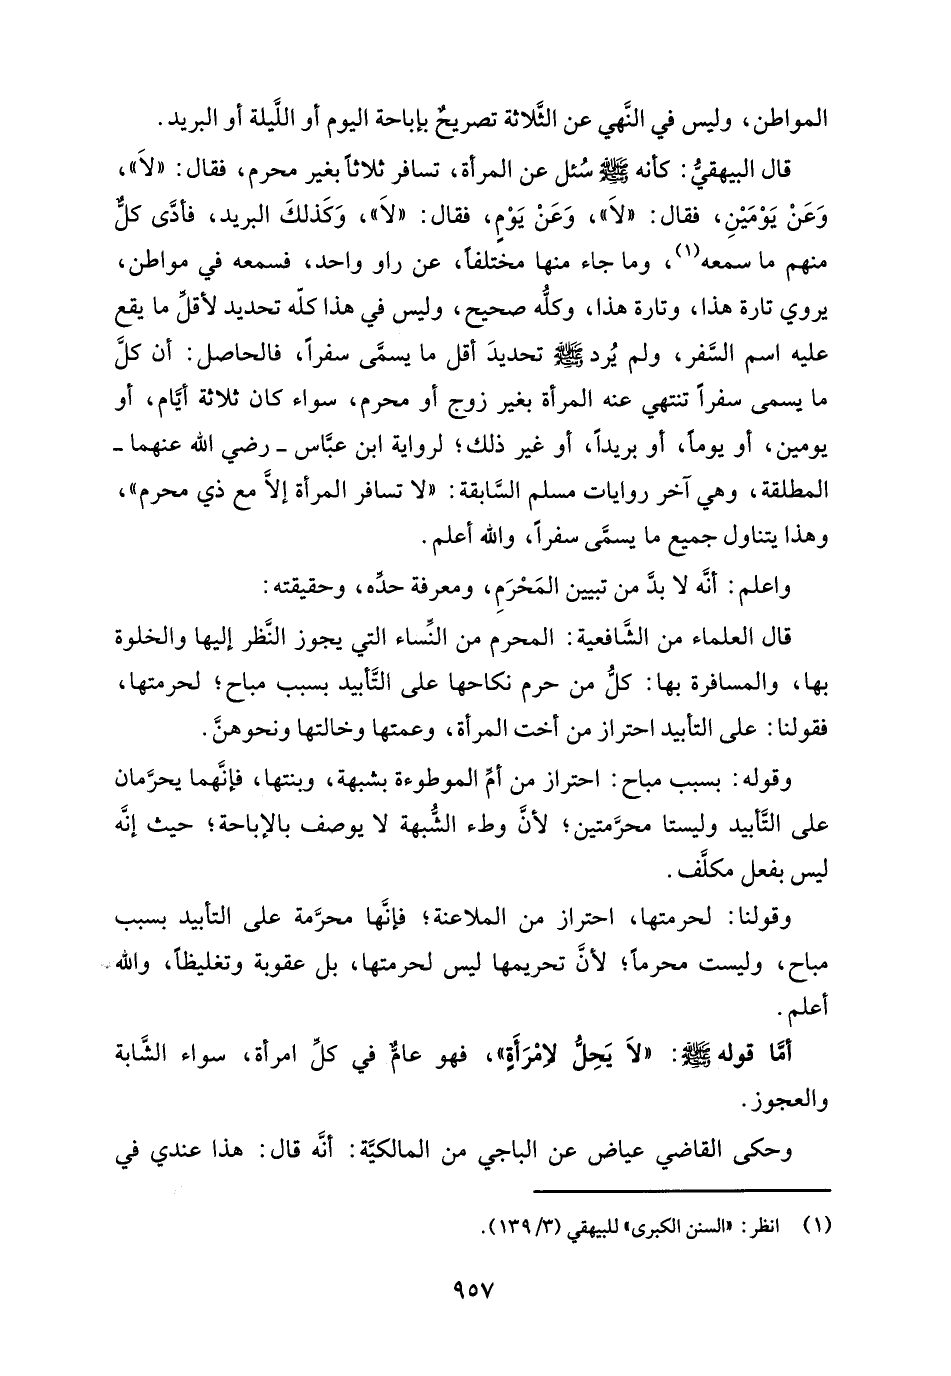 المواطن، وليس في النَّهي عن الثَّلاثة تصريحٌ بإباحة اليوم أو اللَّيلة أو البريد.
قال البيهقيُّ: كأنه ﷺ سُئل عن المرأة، تسافر ثلاثاً بغير محرم، فقال: «لاَ»،
وَعَنْ يَوْمَيْنِ، فقال: «لاَ»، وَعَنْ يَوْمٍ، فقال: «لاَ»، وَكَذلكَ البريد، فأدَّى كلٌّ
منهم ما سمعه(١)، وما جاء منها مختلفاً، عن راو واحد، فسمعه في مواطن،
يروي تارة هذا، وتارة هذا، وكلُّه صحيح، وليس في هذا كلّه تحديد لأقلِّ ما يقع
عليه اسم السَّفر، ولم يُرد ﷺ تحديدَ أقل ما يسمَّى سفراً، فالحاصل: أن كلَّ
ما يسمى سفراً تنتهي عنه المرأة بغير زوج أو محرم، سواء كان ثلاثة أيَّام، أو
يومين، أو يوماً، أو بريداً، أو غير ذلك؛ لرواية ابن عبَّاس ـ رضي الله عنهما ـ
المطلقة، وهي آخر روايات مسلم السَّابقة: «لا تسافر المرأة إلاَّ مع ذي محرم»،
وهذا يتناول جميع ما يسمَّى سفراً، والله أعلم.
واعلم: أنَّه لا بدَّ من تبيين المَحْرَمِ، ومعرفة حدِّه، وحقيقته:
قال العلماء من الشَّافعية: المحرم من النِّساء التي يجوز النَّظر إليها والخلوة
بها، والمسافرة بها: كلُّ من حرم نكاحها على التَّأبيد بسبب مباح؛ لحرمتها،
فقولنا: على التأبيد احتراز من أخت المرأة، وعمتها وخالتها ونحوهنَّ.
وقوله: بسبب مباح: احتراز من أمِّ الموطوءة بشبهة، وبنتها، فإنَّهما يحرَّمان
على التَّأبيد وليستا محرَّمتين؛ لأنَّ وطء الشُّبهة لا يوصف بالإباحة؛ حيث إنَّه
ليس بفعل مكلَّف.
وقولنا: لحرمتها، احتراز من الملاعنة؛ فإنَّها محرَّمة على التأبيد بسبب
مباح، وليست محرماً؛ لأنَّ تحريمها ليس لحرمتها، بل عقوبة وتغليظاً، والله
أعلم.
أمَّا قوله ﷺ: «لاَ يَحِلُّ لاِمْرَأَةٍ»، فهو عامٌّ في كلِّ امرأة، سواء الشَّابة
والعجوز.
وحكى القاضي عياض عن الباجي من المالكيَّة: أنَّه قال: هذا عندي في
(١) انظر: «السنن الكبرى» للبيهقي (٣/ ١٣٩).
٩٥٧